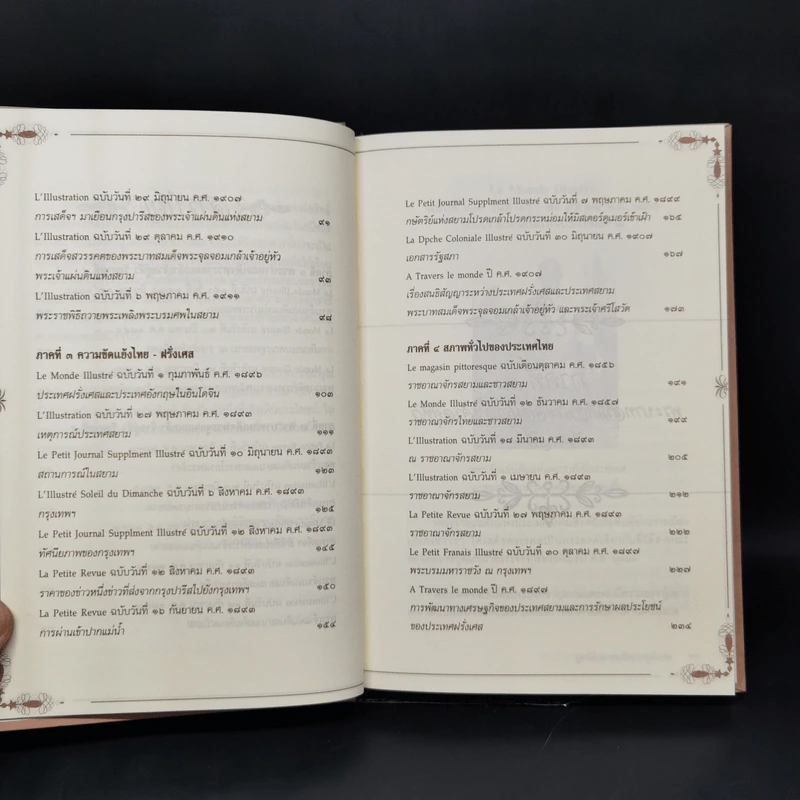 L'Illustration ฉบับวันที่ ๒๙ มิถุนายน ค.ศ. ๑๙๐๗
การเสด็จฯ มาเยือนกรุงปารีสของพระเจ้าแผ่นดินแห่งสยาม ๙๑
L'Illustration ฉบับวันที่ ๒๙ ตุลาคม ค.ศ. ๑๙๑๐
การเสด็จสวรรคตของพระบาทสมเด็จพระจุลจอมเกล้าเจ้าอยู่หัว
พระเจ้าแผ่นดินแห่งสยาม ๙๓
L'Illustration ฉบับวันที่ ๖ พฤษภาคม ค.ศ. ๑๙๑๑
พระราชพิธีถวายพระเพลิงพระบรมศพในสยาม ๙๘
ภาคที่ ๓ ความขัดแย้งไทย - ฝรั่งเศส
Le Monde Illustré ฉบับวันที่ ๑ กุมภาพันธ์ ค.ศ. ๑๘๙๖
ประเทศฝรั่งเศสและประเทศอังกฤษในอินโดจีน ๑๐๓
L'Illustration ฉบับวันที่ ๒๗ พฤษภาคม ค.ศ. ๑๘๙๓
เหตุการณ์ประเทศสยาม ๑๑๑
Le Petit Journal Supplment Illustré ฉบับวันที่ ๑๐ มิถุนายน ค.ศ. ๑๘๙๓
สถานการณ์ในสยาม ๑๒๓
L'Illustré Soleil du Dimanche ฉบับวันที่ ๖ สิงหาคม ค.ศ. ๑๘๙๓
กรุงเทพฯ ๑๒๕
Le Petit Journal Supplment Illustré ฉบับวันที่ ๑๒ สิงหาคม ค.ศ. ๑๘๙๓
ทัศนียภาพของกรุงเทพฯ ๑๔๕
La Petite Revue ฉบับวันที่ ๑๒ สิงหาคม ค.ศ. ๑๘๙๓
ราคาของข่าวหนึ่งข่าวที่ส่งจากกรุงปารีสไปยังกรุงเทพฯ ๑๕๐
La Petite Revue ฉบับวันที่ ๑๖ กันยายน ค.ศ. ๑๘๙๓
การผ่านเข้าปากแม่น้ำ ๑๕๔
Le Petit Journal Supplment Illustré ฉบับวันที่ ๗ พฤษภาคม ค.ศ. ๑๘๙๙
กษัตริย์แห่งสยามโปรดเกล้าโปรดกระหม่อมให้มิสเตอร์ดูเมอร์เข้าเฝ้า ๑๖๕
La Dpche Coloniale Illustré ฉบับวันที่ ๓๐ มิถุนายน ค.ศ. ๑๙๐๗
เอกสารรัฐสภา ๑๖๗
A Travers le monde ปี ค.ศ. ๑๙๐๗
เรื่องสนธิสัญญาระหว่างประเทศฝรั่งเศสและประเทศสยาม
พระบาทสมเด็จพระจุลจอมเกล้าเจ้าอยู่หัว และพระเจ้าศรีโสวัต ๑๗๓
ภาคที่ ๔ สภาพทั่วไปของประเทศไทย
Le magasin pittoresque ฉบับเดือนตุลาคม ค.ศ. ๑๘๕๖
ราชอาณาจักรสยามและชาวสยาม ๑๙๑
Le Monde Illustré ฉบับวันที่ ๑๒ ธันวาคม ค.ศ. ๑๘๕๗
ราชอาณาจักรไทยและชาวสยาม ๑๙๙
L'Illustration ฉบับวันที่ ๑๘ มีนาคม ค.ศ. ๑๘๙๓
ณ ราชอาณาจักรสยาม ๒๐๕
L'Illustration ฉบับวันที่ ๑ เมษายน ค.ศ. ๑๘๙๓
ราชอาณาจักรสยาม ๒๑๒
La Petite Revue ฉบับวันที่ ๒๗ พฤษภาคม ค.ศ. ๑๘๙๓
ราชอาณาจักรสยาม ๒๒๒
Le Petit Franais Illustré ฉบับวันที่ ๓๐ ตุลาคม ค.ศ. ๑๘๙๗
พระบรมมหาราชวัง ณ กรุงเทพฯ ๒๒๗
A Travers le monde ปี ค.ศ. ๑๘๙๗
การพัฒนาทางเศรษฐกิจของประเทศสยามและการรักษาผลประโยชน์
ของประเทศฝรั่งเศส ๒๓๔